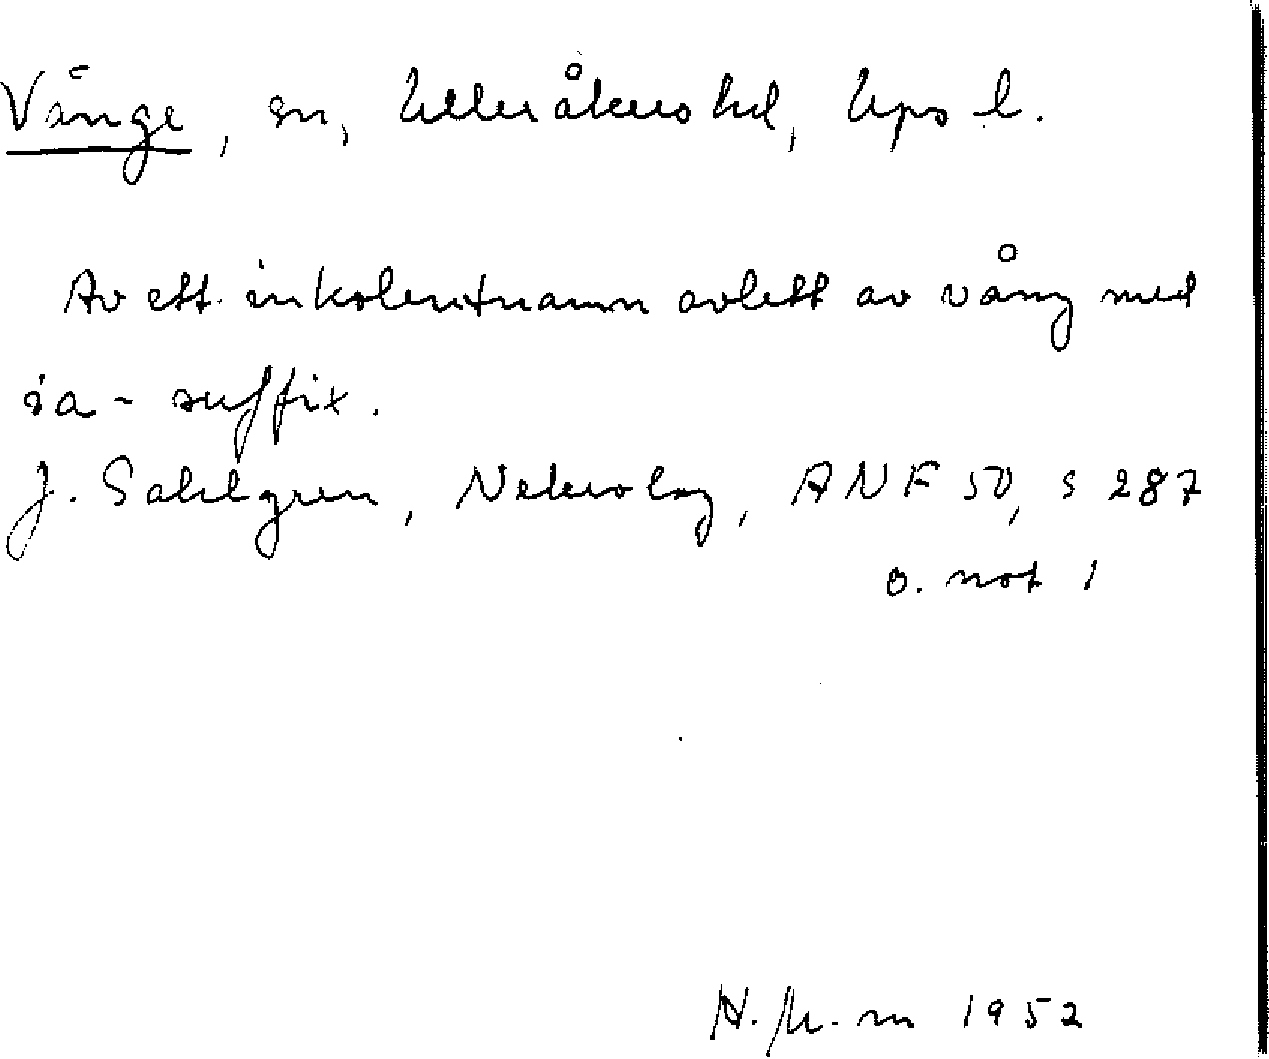 Vänge, sn, Ulleråkers hd, Upps l.
Av ett inkolentnamn avlett av vång med
ia-suffix.
J. Sahlgren, Nekrolog, ANF 50, s 287
o. not 1
1952